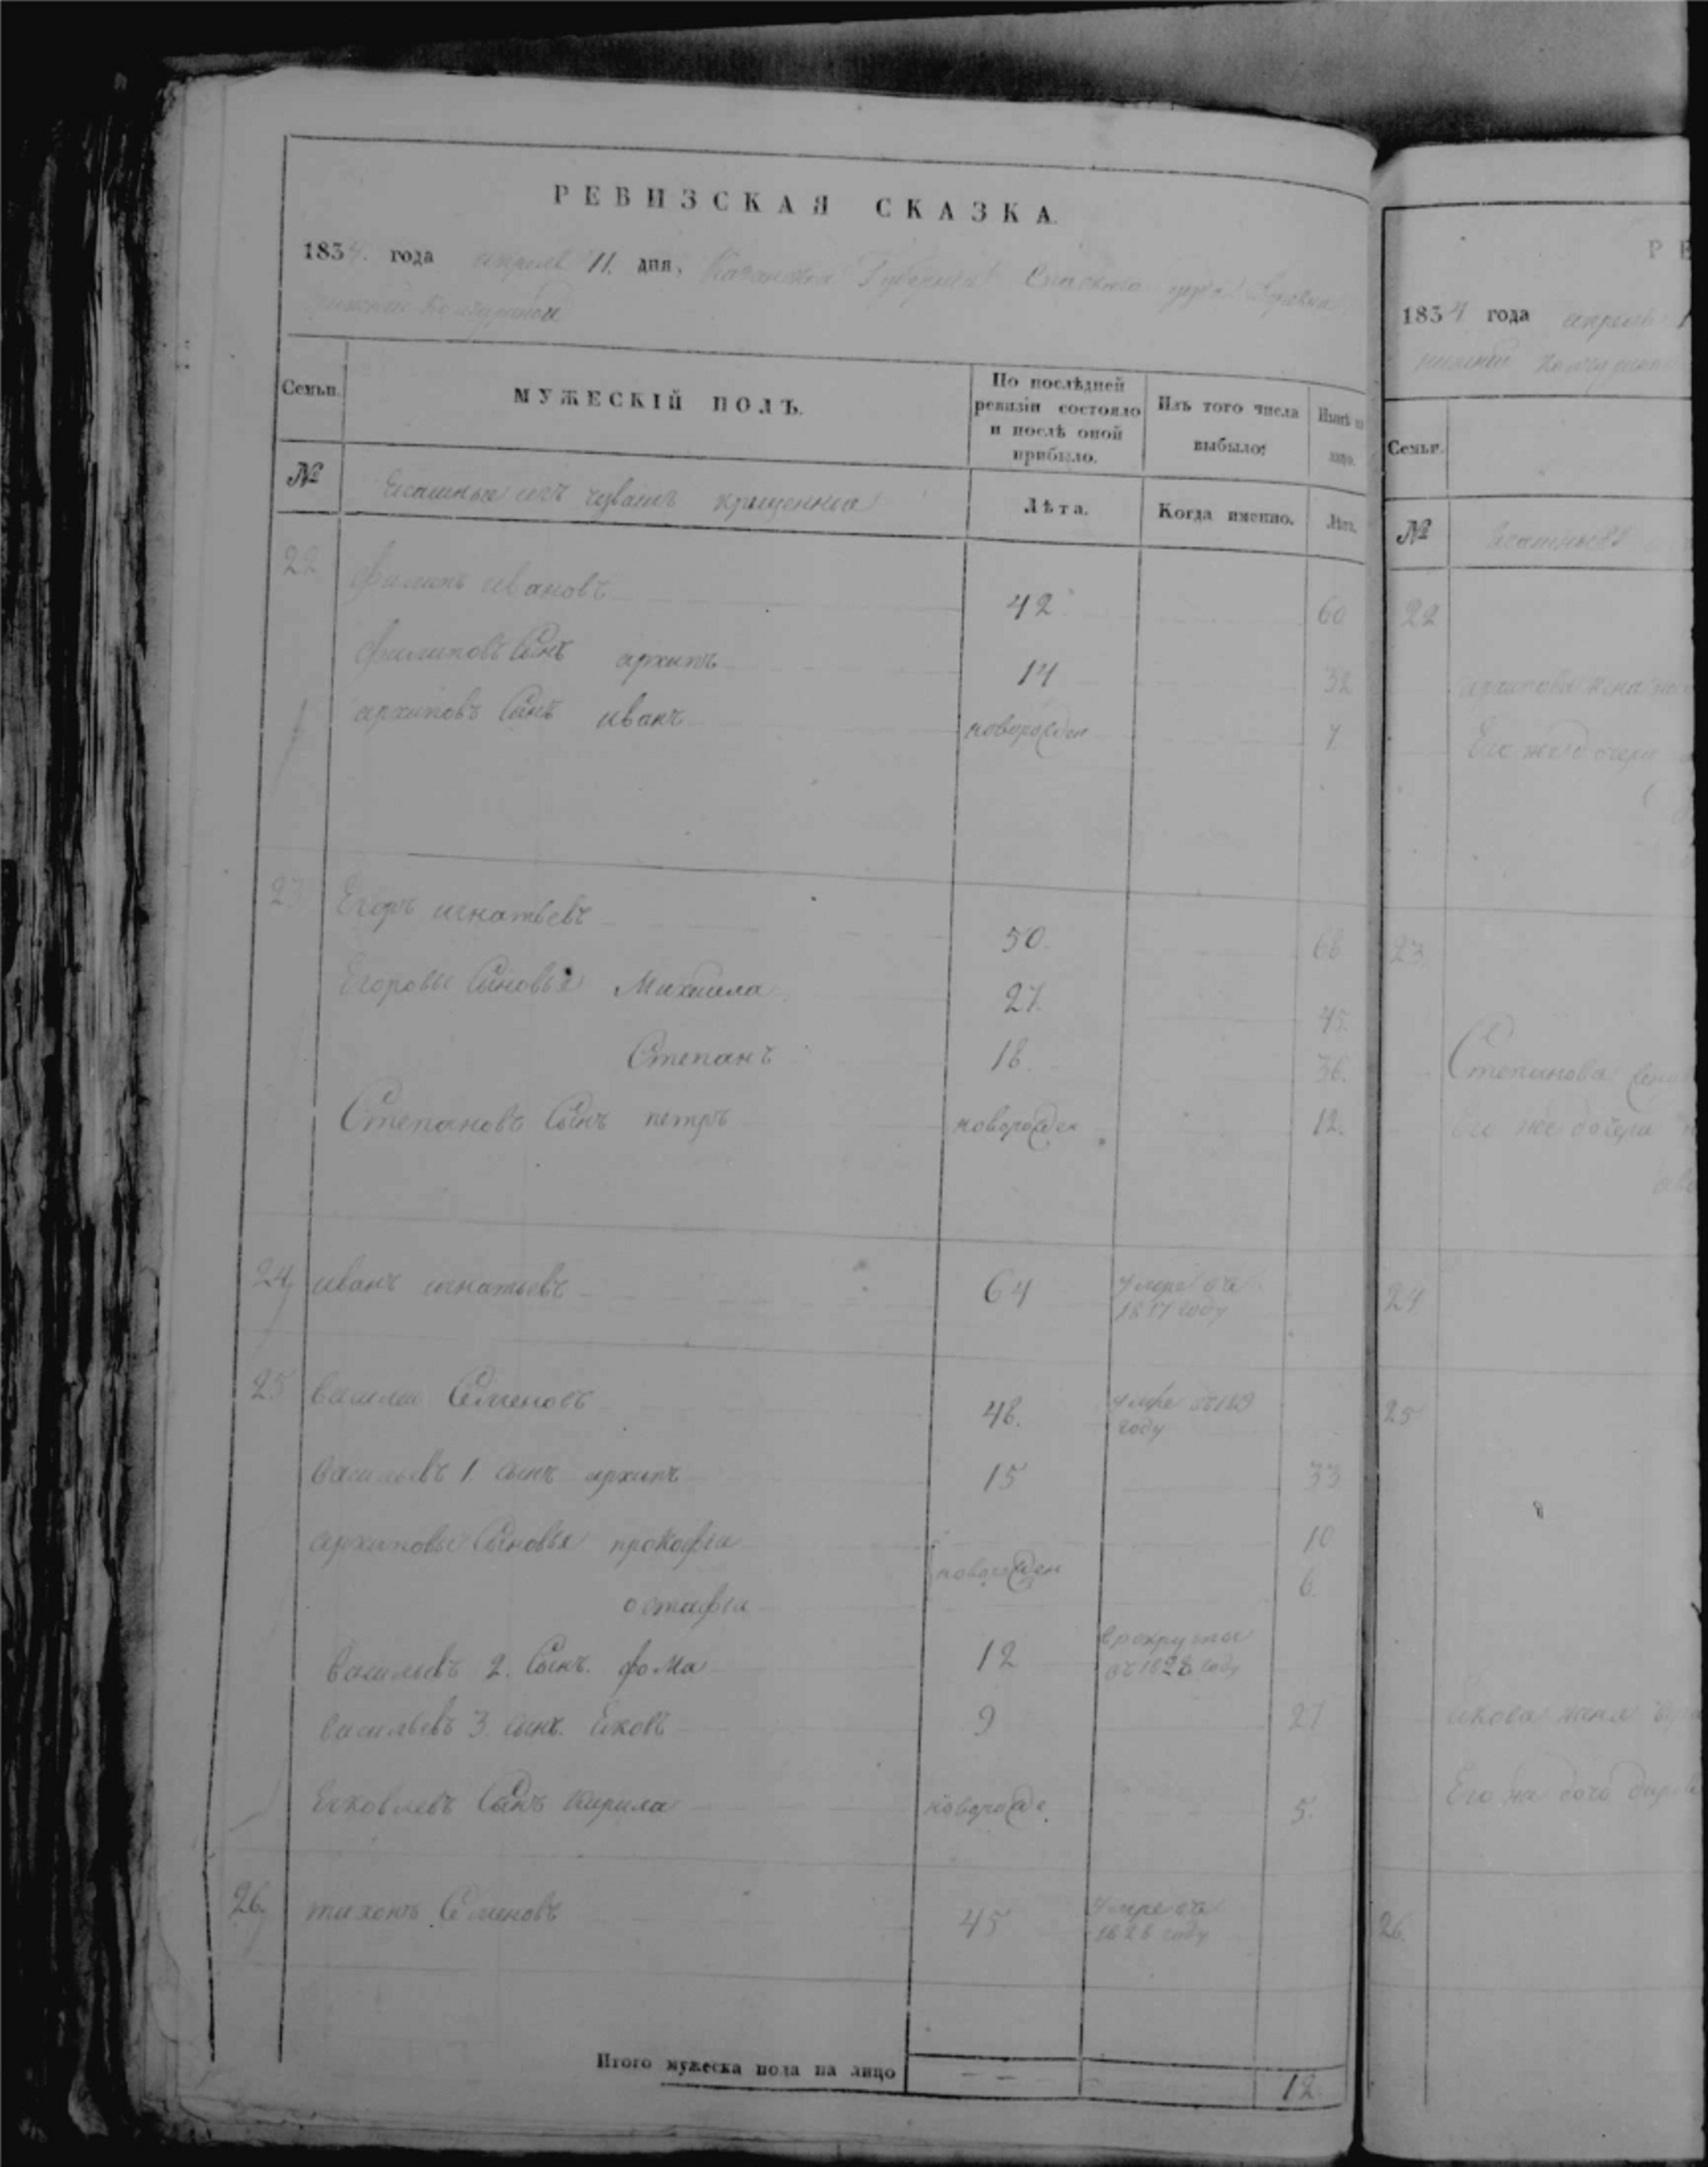 РЕВИЗСКАЯ СКАЗКА.
1834. года апреля 11. дня, Казанской Губернии Спаского уезда Деревни
нижней
Семьи.
МУЖЕСКІЙ ПОЛЪ.
По послѣдней ревизіи состояло и послѣ оной прибыло.
Изъ того числа выбыло:
Нынѣ на лицо.
№
Ясашные изъ чувашъ крещенныя
Лѣта.
Когда именно.
Лѣта.
22 филипъ ивановъ 42 60
филиповъ Сынъ архипъ 14 32
архиповъ Сынъ иванъ новорожден 7
23 Егоръ игнатьевъ 50. 68
Егоровы Сыновья Михаила 27. 45.
Степанъ 18. 36.
Степановъ Сынъ петръ новорожден 12.
24 иванъ игнатьевъ 64 умре въ 1817 году
25 василей Семеновъ 48. умре году
васильевъ 1. сынъ архипъ 15 33
архиповы Сыновья прокофеи новорожден 10
остафеи 6.
васильевъ 2. Сынъ. фома 12 въ 1828 году
васильевъ 3. сынъ. Яковъ 9 27
Яковлевъ Сынъ кирила новорожде. 5.
26. тихонъ Семеновъ 45 умре въ 1828 году
Итого мужеска пола на лицо 12.
РЕ
1834 года апреля 1
нижней
Семьи.
№
Ясашныя
22
архипова жена
Его же дочери
23
Степанова жена
Его же дочери
24
25
Якова жена
Его же дочь
26.